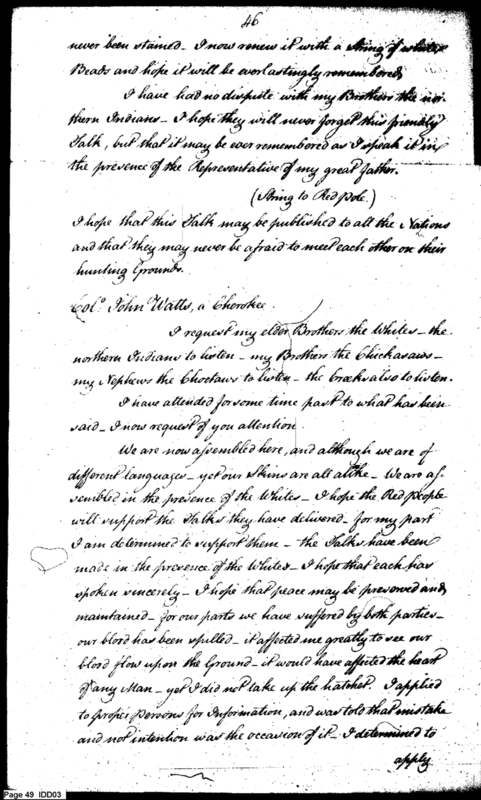 46
never been stained_ I now renew it with a String of white
Beads and hope it will be everlastingly remembered
I have had no dispute with my Brothers the nor-
thern Indians_ I hope they will never forget this friendly
Talk, but that it may be ever remembered as I speak it in
the presence of the Representative of my great father.
(String to Red Pole.)
I hope that this Talk may be published to all the Nations
and that they may never be afraid to meet each other on their
hunting Grounds.
Col.o John Watts, a Cherokee.
I request my elder Brothers the Whites_ the
northern Indians to listen_ my Brothers the Chickasaws_
my Nephews the Choctaws to listen_ the Creeks also to listen.
I have attended for some time past to what has been
said_ I now request of you attention.
We are now assembled here, and although we are of
different languages_ yet our Skins are all alike_ We are as-
sembled in the presence of the Whites_ I hope the Red people
will support the Talks they have delivered_ for my part
I am determined to support them_ the Talks have been
made in the presence of the Whites_ I hope that each has
spoken sincerely_ I hope that peace may be preserved and
maintained_ for our parts we have suffered by both parties_
our blood has been spilled_ it affected me greatly to see our
blood flow upon the Ground_ it would have affected the heart
of any Man_ yet I did not take up the hatchet. I applied
to proper Persons for Information, and was told that mistake
and not intention was the occasion of it_ I determined to
apply
Page 49 IDD03